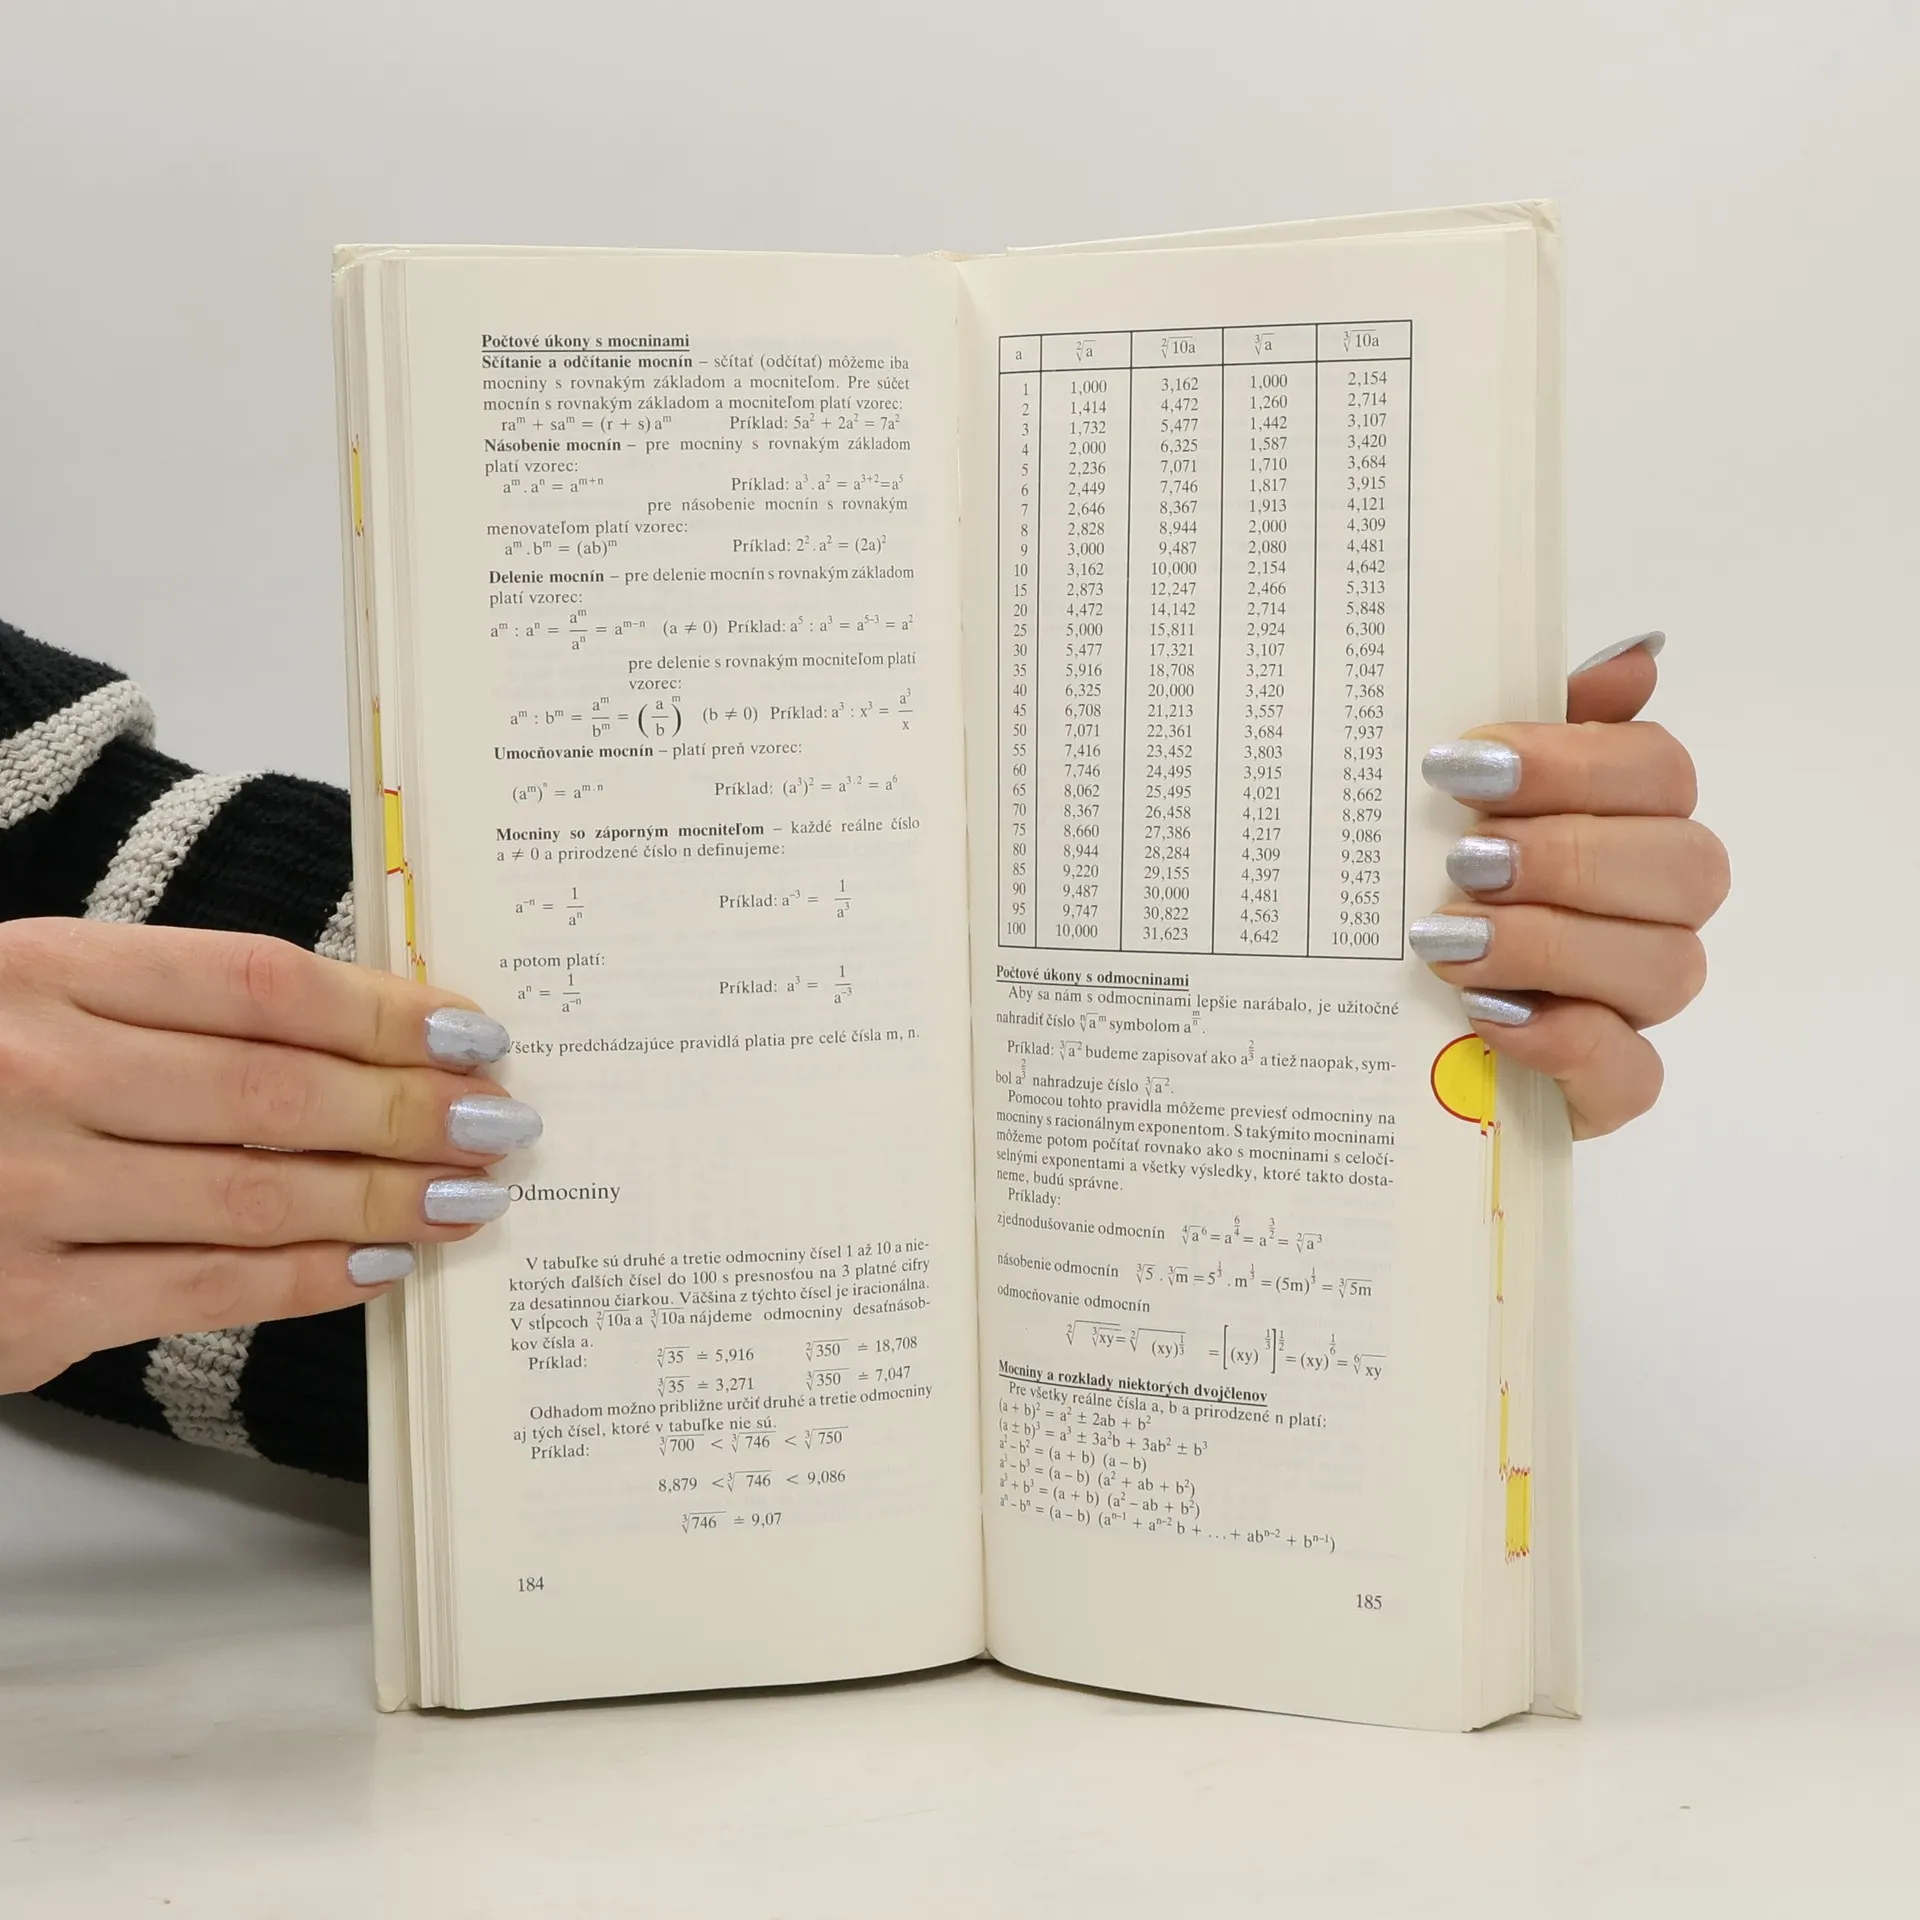 Počtové úkony s mocninami
Sčítanie a odčítanie mocnín – sčítať (odčítať) môžeme iba
mocniny s rovnakým základom a mocniteľom. Pre súčet
mocnín s rovnakým základom a mocniteľom platí vzorec:
raᵐ + saᵐ = (r + s) aᵐ Príklad: 5a² + 2a² = 7a²
Násobenie mocnín – pre mocniny s rovnakým základom
platí vzorec:
aᵐ . aⁿ = aᵐ⁺ⁿ Príklad: a³ . a² = a³⁺²=a⁵
pre násobenie mocnín s rovnakým
menovateľom platí vzorec:
aᵐ . bᵐ = (ab)ᵐ Príklad: 2² . a² = (2a)²
Delenie mocnín – pre delenie mocnín s rovnakým základom
platí vzorec:
aᵐ : aⁿ = aᵐ/aⁿ = aᵐ⁻ⁿ (a ≠ 0) Príklad: a⁵ : a³ = a⁵⁻³ = a²
pre delenie s rovnakým mocniteľom platí
vzorec:
aᵐ : bᵐ = aᵐ/bᵐ = (a/b)ᵐ (b ≠ 0) Príklad: a³ : x³ = a³/x
Umocňovanie mocnín – platí preň vzorec:
(aᵐ)ⁿ = aᵐ·ⁿ Príklad: (a³)² = a³·² = a⁶
Mocniny so záporným mocniteľom – každé reálne číslo
a ≠ 0 a prirodzené číslo n definujeme:
a⁻ⁿ = 1/aⁿ Príklad: a⁻³ = 1/a³
a potom platí:
aⁿ = 1/a⁻ⁿ Príklad: a³ = 1/a⁻³
Všetky predchádzajúce pravidlá platia pre celé čísla m, n.
Odmocniny
V tabuľke sú druhé a tretie odmocniny čísel 1 až 10 a nie-
ktorých ďalších čísel do 100 s presnosťou na 3 platné cifry
za desatinnou čiarkou. Väčšina z týchto čísel je iracionálna.
V stĺpcoch ²√10a a ³√10a nájdeme odmocniny desaťnásob-
kov čísla a.
Príklad: ²√35 ≐ 5,916 ²√350 ≐ 18,708
³√35 ≐ 3,271 ³√350 ≐ 7,047
Odhadom možno približne určiť druhé a tretie odmocniny
aj tých čísel, ktoré v tabuľke nie sú.
Príklad: ³√700 < ³√746 < ³√750
8,879 < ³√746 < 9,086
³√746 ≐ 9,07
184
a ²√a ²√10a ³√a ³√10a
1 1,000 3,162 1,000 2,154
2 1,414 4,472 1,260 2,714
3 1,732 5,477 1,442 3,107
4 2,000 6,325 1,587 3,420
5 2,236 7,071 1,710 3,684
6 2,449 7,746 1,817 3,915
7 2,646 8,367 1,913 4,121
8 2,828 8,944 2,000 4,309
9 3,000 9,487 2,080 4,481
10 3,162 10,000 2,154 4,642
15 2,873 12,247 2,466 5,313
20 4,472 14,142 2,714 5,848
25 5,000 15,811 2,924 6,300
30 5,477 17,321 3,107 6,694
35 5,916 18,708 3,271 7,047
40 6,325 20,000 3,420 7,368
45 6,708 21,213 3,557 7,663
50 7,071 22,361 3,684 7,937
55 7,416 23,452 3,803 8,193
60 7,746 24,495 3,915 8,434
65 8,062 25,495 4,021 8,662
70 8,367 26,458 4,121 8,879
75 8,660 27,386 4,217 9,086
80 8,944 28,284 4,309 9,283
85 9,220 29,155 4,397 9,473
90 9,487 30,000 4,481 9,655
95 9,747 30,822 4,563 9,830
100 10,000 31,623 4,642 10,000
Počtové úkony s odmocninami
Aby sa nám s odmocninami lepšie narábalo, je užitočné
nahradiť číslo ⁿ√aᵐ symbolom a^(m/n).
Príklad: ³√a² budeme zapisovať ako a^(2/3) a tiež naopak, sym-
bol a^(2/3) nahradzuje číslo ³√a².
Pomocou tohto pravidla môžeme previesť odmocniny na
mocniny s racionálnym exponentom. S takýmito mocninami
môžeme potom počítať rovnako ako s mocninami s celočí-
selnými exponentami a všetky výsledky, ktoré takto dosta-
neme, budú správne.
Príklady:
zjednodušovanie odmocnín ⁴√a⁶ = a^(6/4) = a^(3/2) = ²√a³
násobenie odmocnín ³√5 . ³√m = 5^(1/3) . m^(1/3) = (5m)^(1/3) = ³√5m
odmocňovanie odmocnín
²√³√xy = ²√(xy)^(1/3) = [(xy)^(1/3)]^(1/2) = (xy)^(1/6) = ⁶√xy
Mocniny a rozklady niektorých dvojčlenov
Pre všetky reálne čísla a, b a prirodzené n platí:
(a + b)² = a² ± 2ab + b²
(a ± b)³ = a³ ± 3a²b + 3ab² ± b³
a² – b² = (a + b) (a – b)
a³ – b³ = (a – b) (a² + ab + b²)
a³ + b³ = (a + b) (a² – ab + b²)
aⁿ – bⁿ = (a – b) (aⁿ⁻¹ + aⁿ⁻² b + ...+ abⁿ⁻² + bⁿ⁻¹)
185